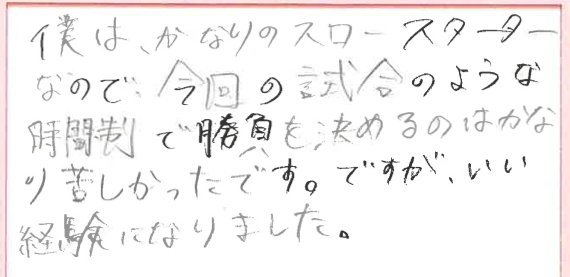 僕は、かなりのスロースターター
なので、今回の試合のような
時間制で勝負を決めるのはかな
り苦しかったです。ですが、いい
経験になりました。